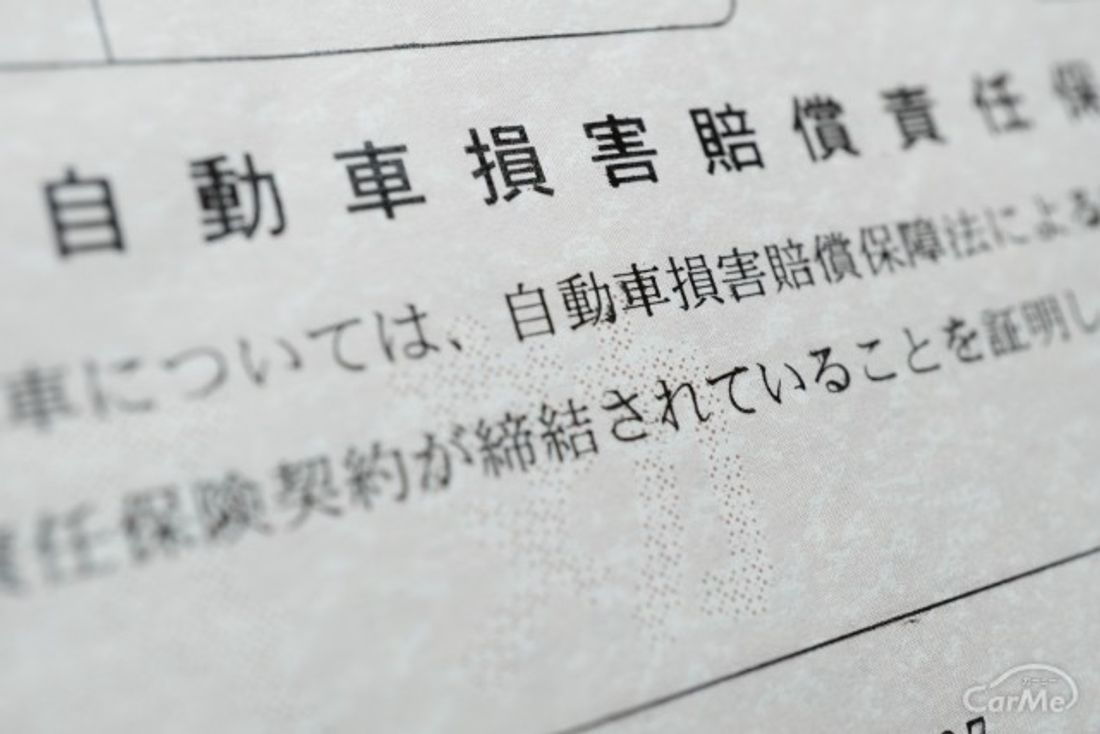 自動車損害賠償責任保
車については、自動車損害賠償保障法による
責任保険契約が締結されていることを証明し
カーミー
CarMe